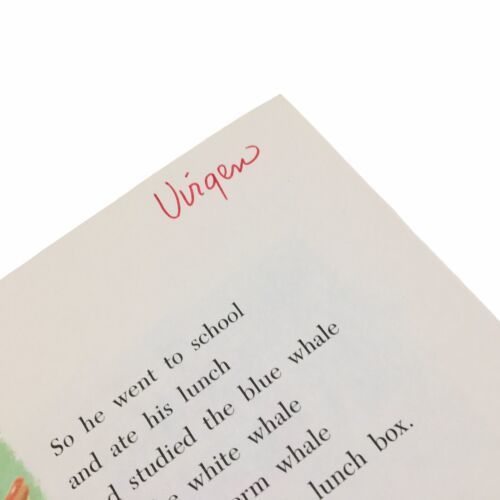 Virgen
So he went to school
and ate his lunch
studied the blue whale
white whale
whale
lunch box.